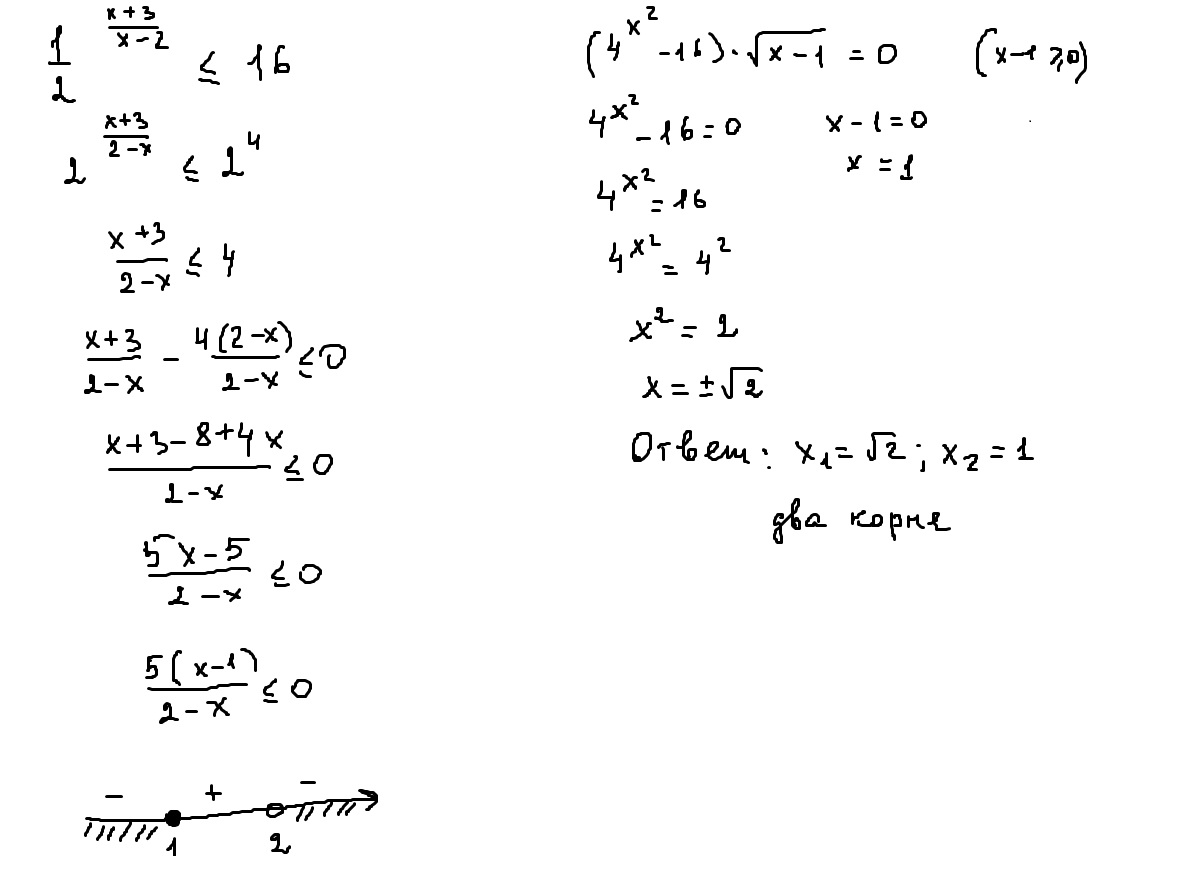 1/2^((x+3)/(x-2)) ≤ 16
2^((x+3)/(2-x)) ≤ 2^4
(x+3)/(2-x) ≤ 4
(x+3)/(2-x) - 4(2-x)/(2-x) ≤ 0
(x+3-8+4x)/(2-x) ≤ 0
(5x-5)/(2-x) ≤ 0
5(x-1)/(2-x) ≤ 0
- + -
1 2
(4^x² - 16)·√(x-1) = 0 (x-1 ≥ 0)
4^x² - 16 = 0 x - 1 = 0
x = 1
4^x² = 16
4^x² = 4²
x² = 2
x = ±√2
Ответ: x₁ = √2; x₂ = 1
два корня